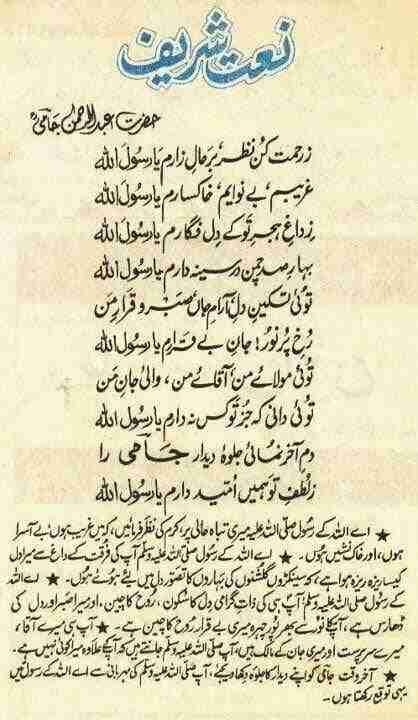 نعت شریف
حضرت عبدالرحمن جامیؒ
ز رحمت کن نظر، بر حال زارم یا رسول اللہ
غریبم، بے نوایم، خاکسارم یا رسول اللہ
ز داغِ ہجرِ تو کے دل فگارم یا رسول اللہ
بہار صد چمن در سینہ دارم یا رسول اللہ
توئی تسکین دل، آرام جاں، صبر و قرارِ من
رُخِ پُر نور! جانِ بے قرارم یا رسول اللہ
توئی مولائے من، آقائے من، والئ جانِ من
توئی دانی کہ جز تو کس نہ دارم یا رسول اللہ
دمِ آخر نمائی جلوۂ دیدار جامی را
ز لطفِ تو ہمیں امّید دارم یا رسول اللہ
★ اے اللہ کے رسول صلی اللہ علیہ وسلم میری تباہ حالی پر، کرم کی نظر فرمائیں، کہ میں غریب ہوں، بے آسرا
ہوں، اور خاک نشیں ہوں۔ ★ اے اللہ کے رسول صلی اللہ علیہ وسلم آپ کی فرقت کے داغ سے میرا دل
کیسا ریزہ ریزہ ہوا ہے، کہ سینکڑوں گلشنوں کی بہاروں کا تصوّر دل میں لئے ہوئے ہوں۔ ★ اے اللہ
کے رسول صلی اللہ علیہ وسلم! آپ ہی کی ذات گرامی دل کا سکون، روح کا چین۔ اور میرا صبر اور دل کی
ڈھارس ہے، آپکا نور سے بھرپور چہرہ میری بے قرار روح کا چین ہے۔ ★ آپ ہی میرے آقا،
میرے سرپرست اور میری جان کے مالک ہیں، آپ صلی اللہ علیہ وسلم جانتے ہیں کہ آپکے علاوہ میرا کوئی نہیں ہے۔
★ آخر وقت جامی کو اپنے دیدار کا جلوہ دکھا دیجئے، آپ صلی اللہ علیہ وسلم کی مہربانی سے اے اللہ کے رسول میں
یہی توقع رکھتا ہوں۔